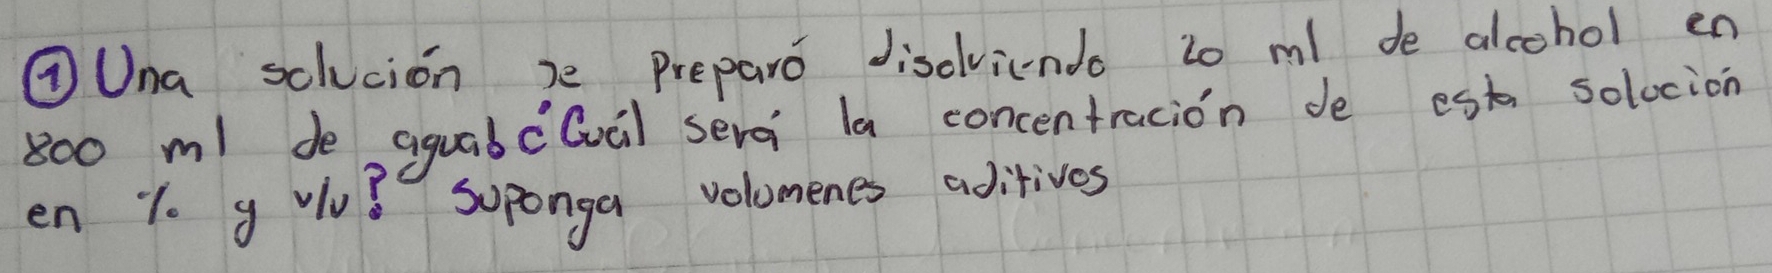 ① Una solución se preparó disolviendo 20 ml de alcohol en
800 ml de agua ¿Cuál será la concentración de esta solución
en % y v/v? Suponga volumenes aditivos